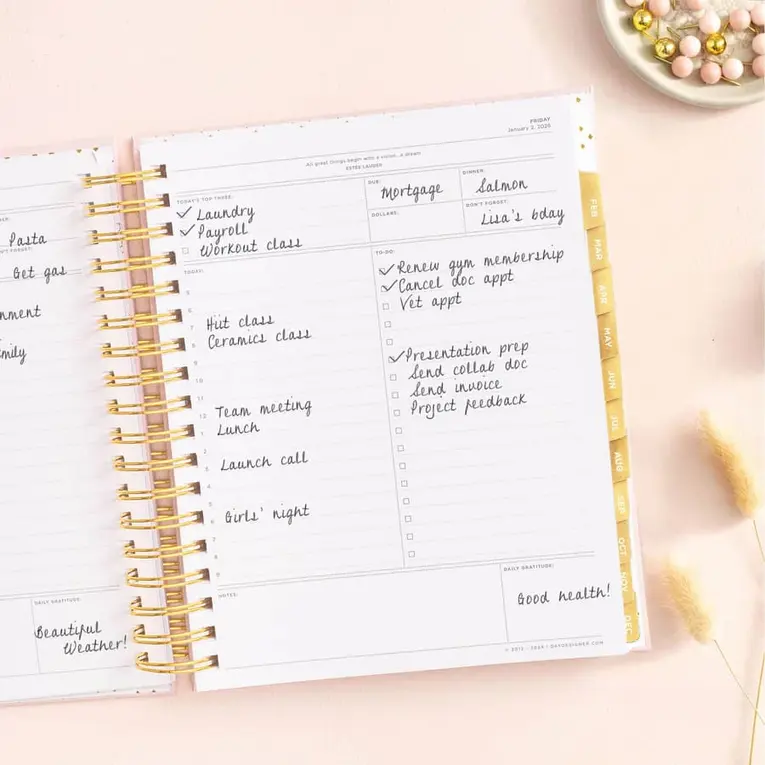 Pasta
Get gas
nment
mily
DAILY GRATITUDE:
Beautiful
Weather!
FRIDAY
January 2, 2026
All great things begin with a vision...a dream
ESTÉE LAUDER
TODAY'S TOP THREE:
Laundry
Payroll
Workout class
DUE:
Mortgage
DINNER:
Salmon
DOLLARS:
DON'T FORGET:
Lisa's bday
TODAY:
5
6
7 Hiit class
8 Ceramics class
9
10
11
12 Team meeting
1 Lunch
2
3 Launch call
4
5
6 Girls' night
7
8
9
TO-DO:
Renew gym membership
Cancel doc appt
Vet appt
Presentation prep
Send collab doc
Send invoice
Project feedback
NOTES:
DAILY GRATITUDE:
Good health!
DAYDESIGNER.COM
FEB
MAR
APR
MAY
JUN
JUL
AUG
SEP
OCT
NOV
DEC